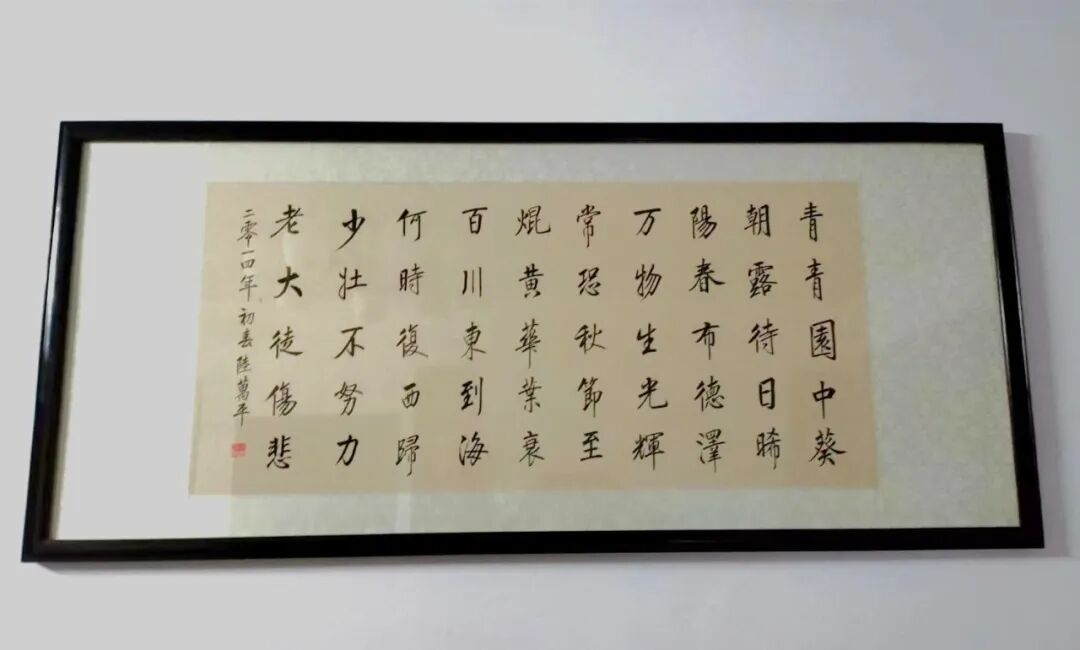 青青園中葵
朝露待日晞
陽春布德澤
万物生光輝
常恐秋節至
焜黄華葉衰
百川東到海
何時復西歸
少壯不努力
老大徒傷悲
二零一四年初春陸萬平